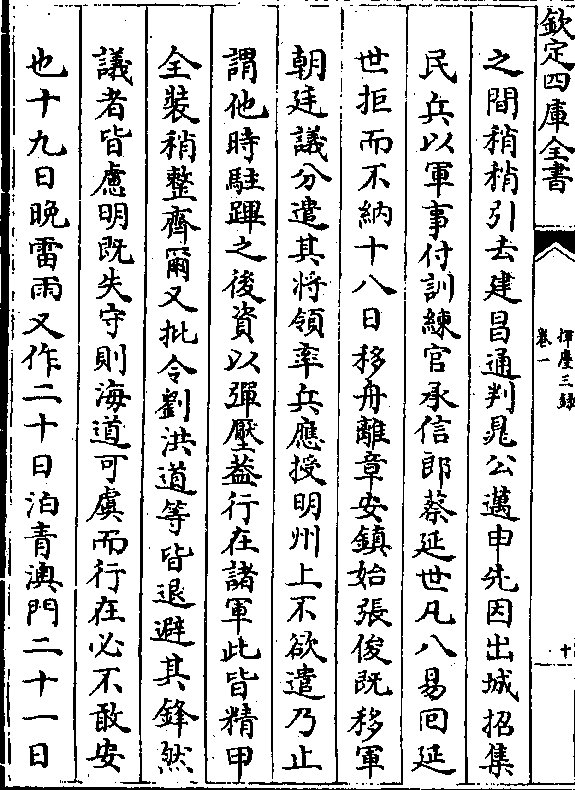 欽定四庫全書
揮麈三録
卷一
十
之間稍稍引去建昌通判晁公邁申先因出城招集
民兵以軍事付訓練官承信郎蔡延世凡八易囘延
世拒而不納十八日移舟離章安鎮始張俊既移軍
朝廷議分遣其將領率兵應授明州上不欲遣乃止
謂他時駐蹕之後資以彈壓葢行在諸軍此皆精甲
全裝稍整齊爾又批令劉洪道等皆退避其鋒然
議者皆慮明既失守則海道可虞而行在必不敢安
也十九日晚雷雨又作二十日泊青澳門二十一日